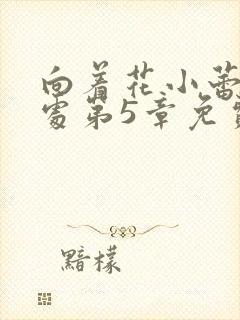 向着花小蕾
处第5章免费
黯檬